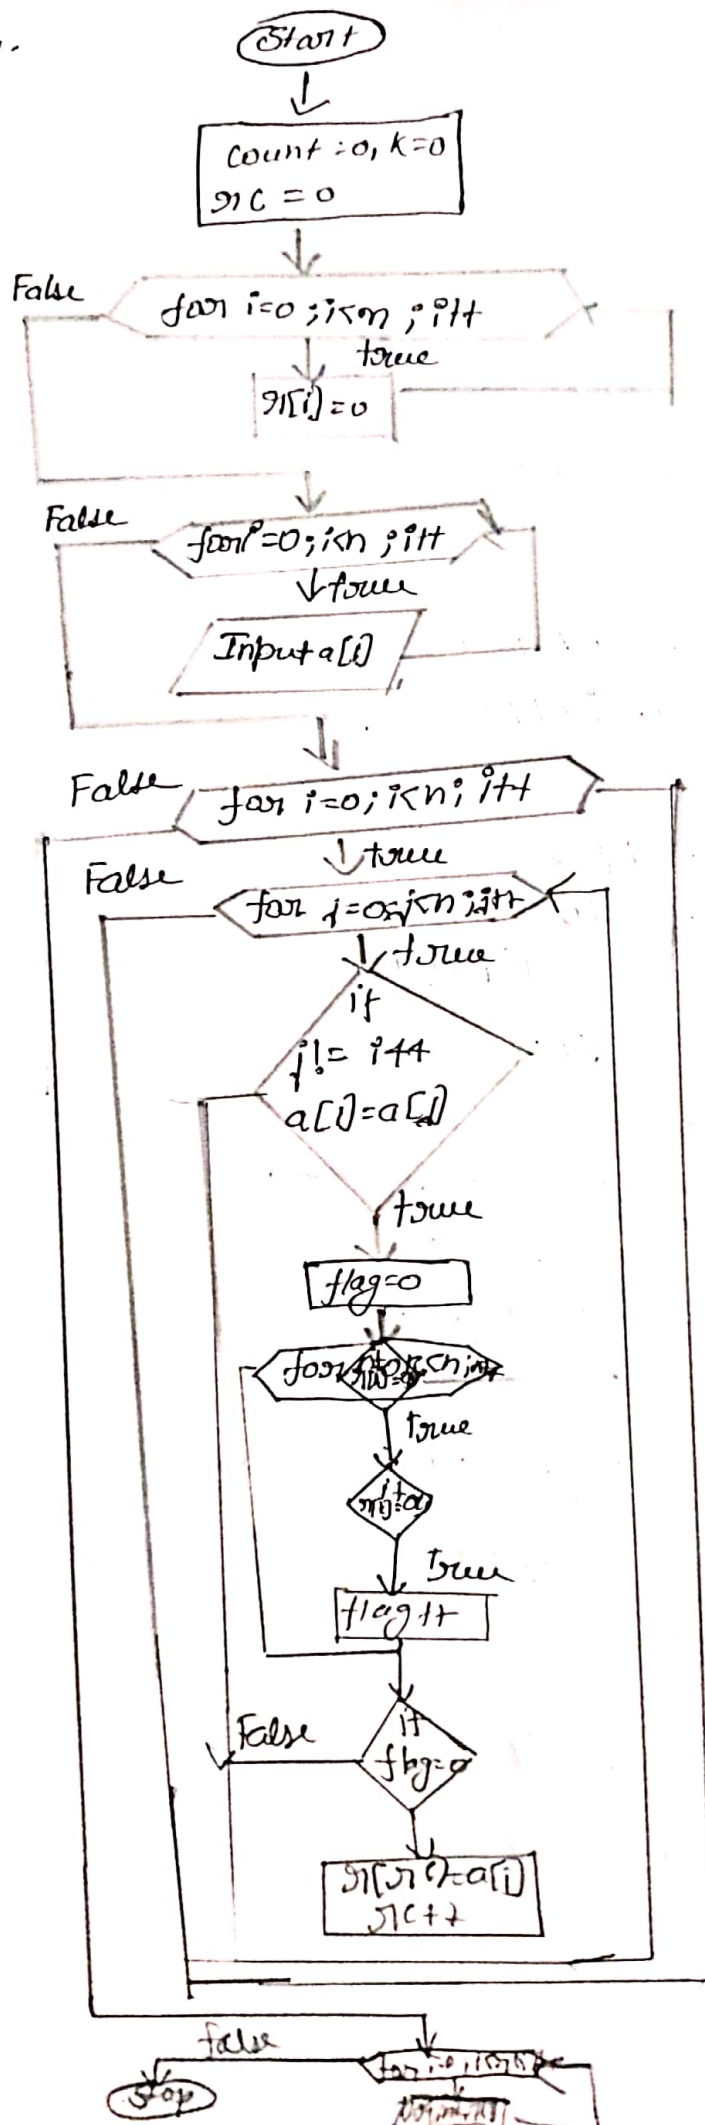 Start
count =0, k=0
rc = 0
False
for i=0 ; i<n ; i++
true
r[i]=0
False
for i=0 ; i<n ; i++
true
Input a[i]
False
for i=0 ; i<n ; i++
true
False
for j=0; j<n ; j++
true
if
j!= i &&
a[i]=a[j]
true
flag=0
for k<n
true
if
true
flag++
False
if
flag=0
r[rc]=a[i]
rc++
false
for i=0
Stop